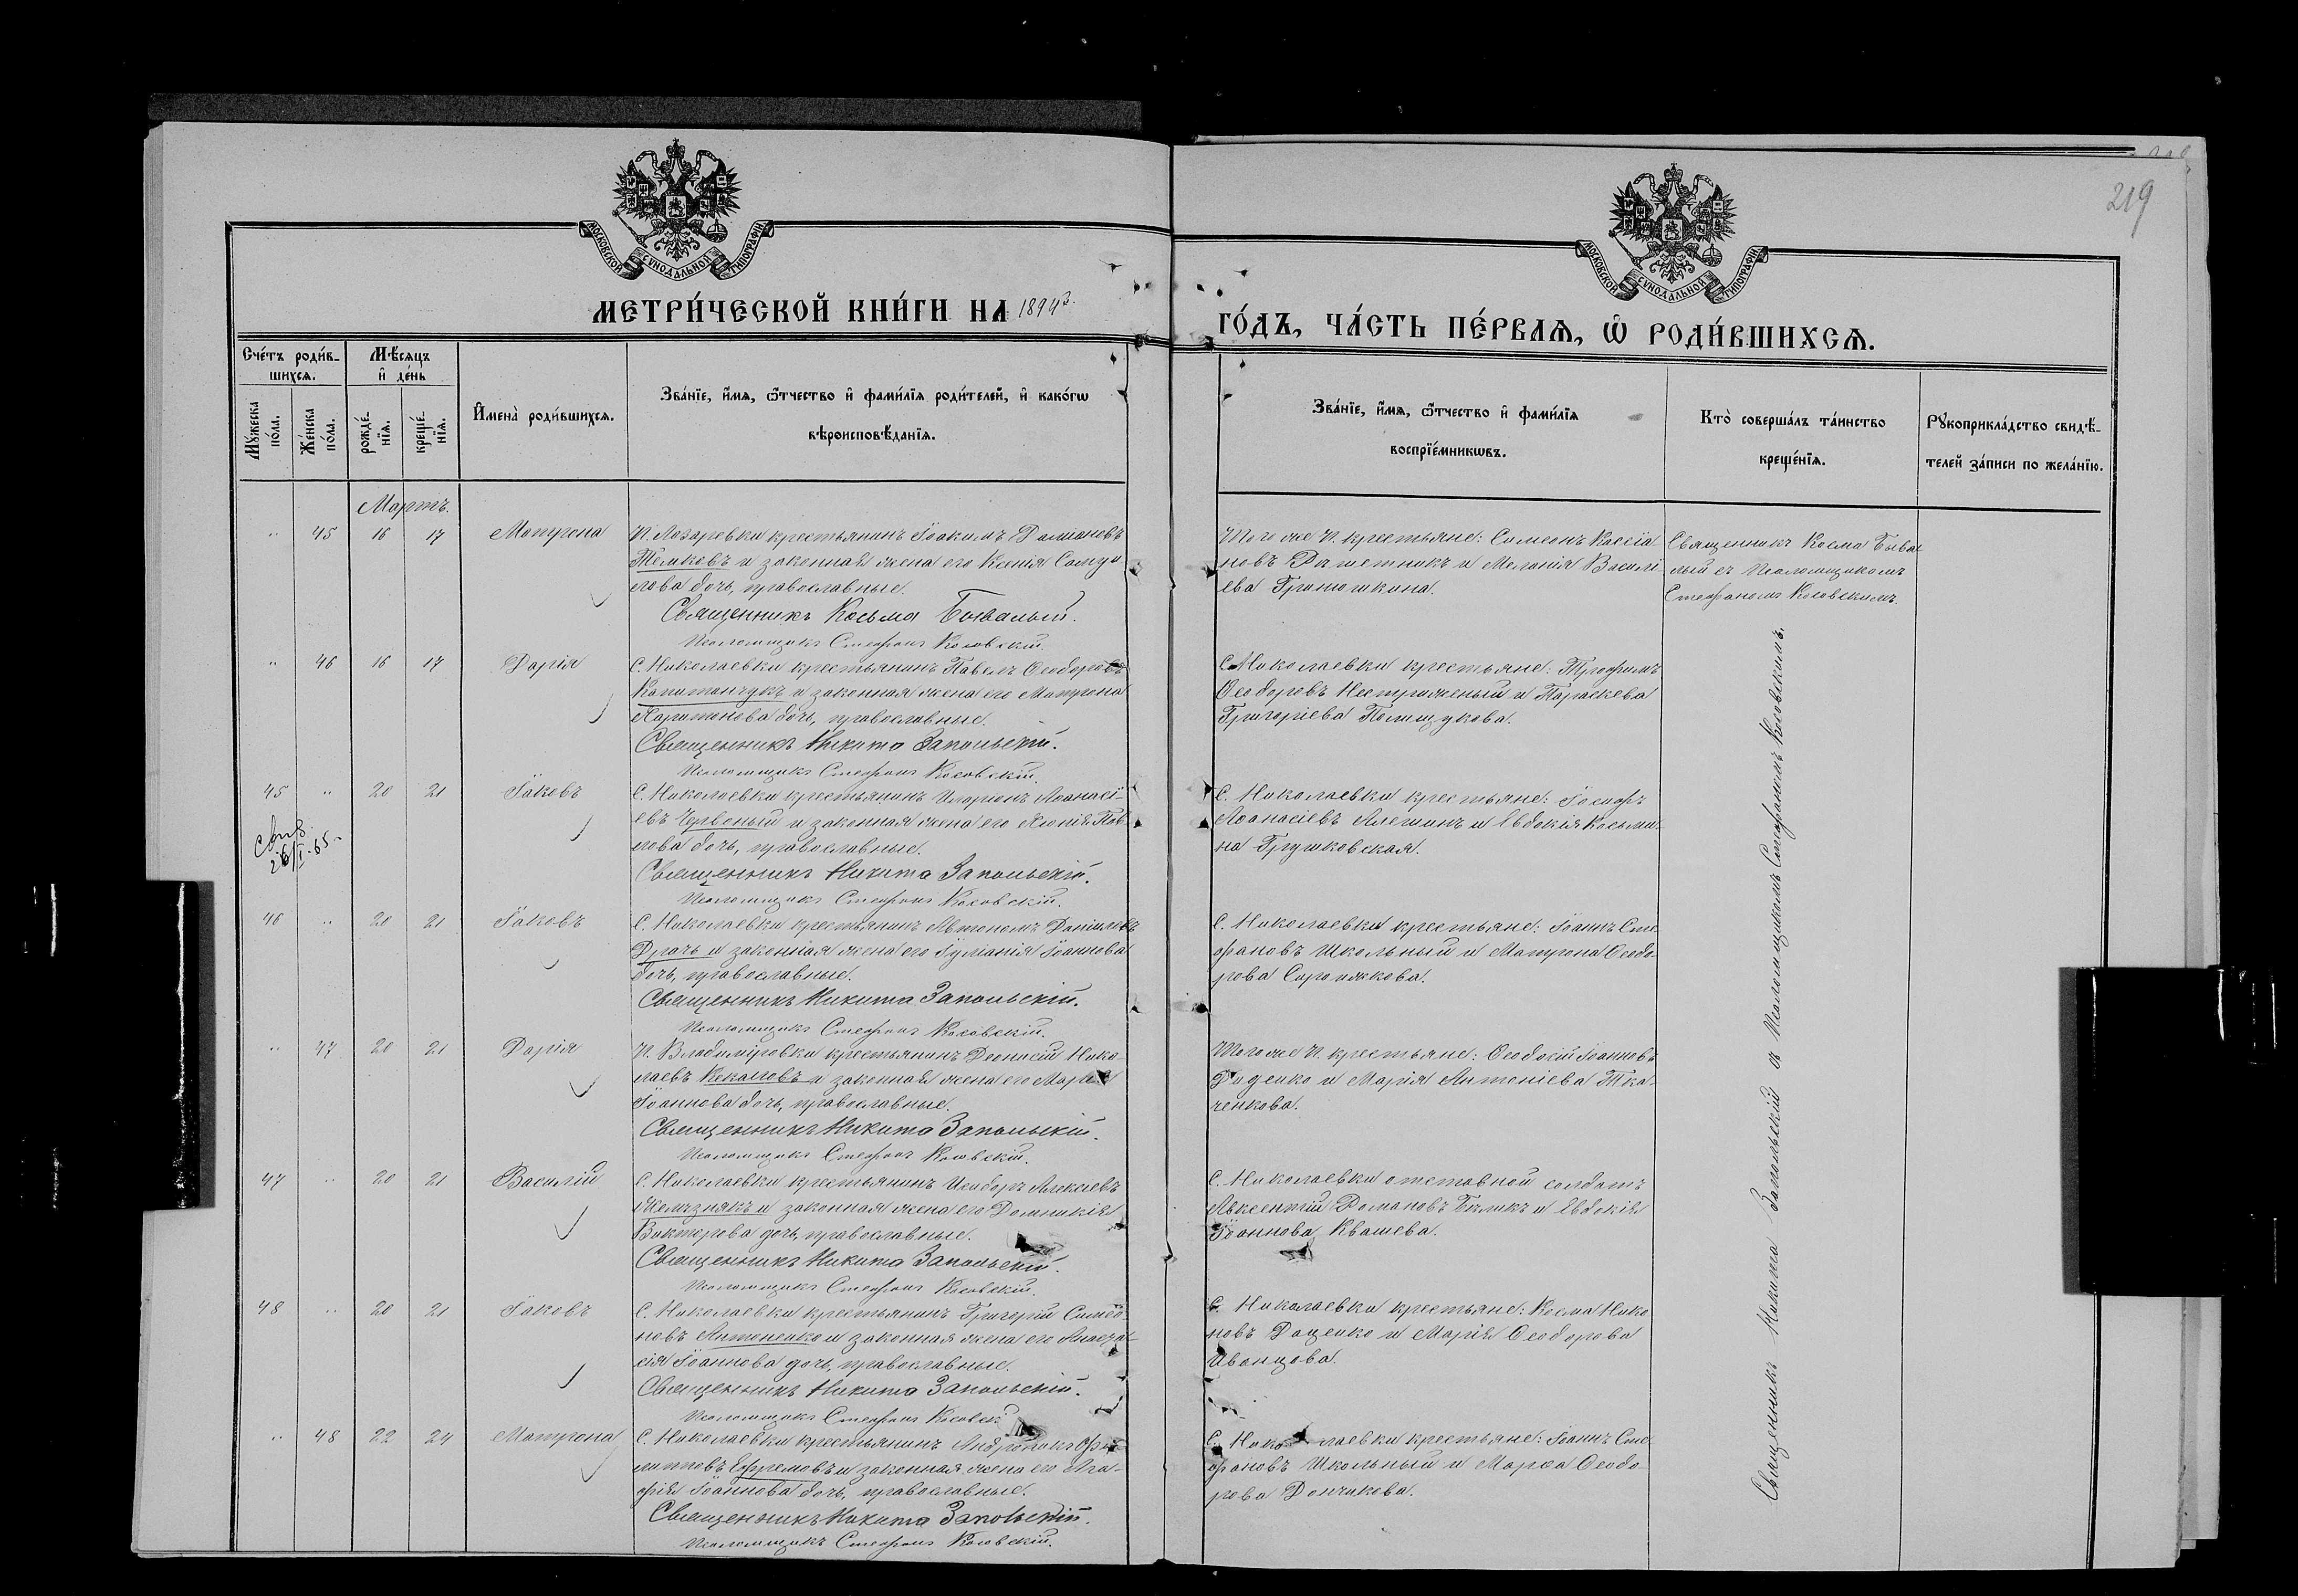 219
МОСКОВСКОЙ СѴНОДАЛЬНОЙ ТИПОГРАФІИ
МОСКОВСКОЙ СѴНОДАЛЬНОЙ ТИПОГРАФІИ
МЕТРИ́ЧЕСКОЙ КНИ́ГИ НА 1894
ГО́ДЪ, ЧА́СТЬ ПЕ́РВАѦ, Ѽ РОДИ́ВШИХСѦ.
Сче́тъ роди́в-
шихсѧ.
Мѣ́сѧцъ
и҆ де́нь
Мꙋ́жеска по́ла.
Же́нска по́ла.
рожде́-
нїѧ.
креще́-
нїѧ.
И҆мена̀ роди́вшихсѧ.
Зва́нїе, и҆́мѧ, ѻ҆́тчество и҆ фами́лїѧ роди́телей, и҆ како́гѡ
вѣроисповѣ́данїѧ.
Зва́нїе, и҆́мѧ, ѻ҆́тчество и҆ фами́лїѧ
воспрїе́мникѡвъ.
Кто̀ соверша́лъ та́инство
креще́нїѧ.
Рꙋкоприкла́дство свидѣ́-
телей за́писи по жела́нїю.
Мартъ.
" 45 16 17 Матрона
П. Лазаревки крестьянинъ Іоакимъ Даміановъ
Темковъ и законная жена его Ксенія
дочь, православные.
Священникъ Косьма Бывалый.
Псаломщикъ Стефанъ Косовскій.
Того же П. крестьяне: Симеонъ Кассіа
новъ Решетникъ и Меланія Васили
ева Гринюшкина.
Священникъ Косма Быва
лый съ Псаломщикомъ
Стефаномъ Косовскимъ.
" 46 16 17 Дарія
С. Николаевки крестьянинъ Павелъ Ѳеодоровъ
Капитанчукъ и законная жена его Матрона
Харитонова дочь, православные.
Священникъ Никита Запольскій.
Псаломщикъ Стефанъ Косовскій.
С. Николаевки крестьяне: Трофимъ
Ѳеодоровъ Нестриженый и Параскева
Григоріева Полищукова.
45 " 20 21 Іаковъ
26/I-65
С. Николаевки крестьянинъ Иларіонъ Аѳанасі-
евъ Червоный и законная жена его
дочь, православные.
Священникъ Никита Запольскій.
Псаломщикъ Стефанъ Косовскій.
С. Николаевки крестьяне: Іосифъ
Аѳанасіевъ Алешинъ и Евдокія Косьми-
на Грушковская.
46 " 20 21 Іаковъ
С. Николаевки крестьянинъ Автономъ Даніиловъ
Драчъ и законная жена его Іуліанія Іоаннова
дочь, православные.
Священникъ Никита Запольскій.
Псаломщикъ Стефанъ Косовскій.
С. Николаевки крестьяне: Іоаннъ Сте-
фановъ Школьный и Матрона Ѳеодо-
рова
" 47 20 21 Дарія
П. Владиміровки крестьянинъ Діонисій Нико-
лаевъ Кекаловъ и законная жена его Марія
Іоаннова дочь, православные.
Священникъ Никита Запольскій.
Псаломщикъ Стефанъ Косовскій.
Того же П. крестьяне: Ѳеодосій Іоанновъ
Диденко и Марія Антоніева Тка-
ченкова.
47 " 20 21 Василій
С. Николаевки крестьянинъ Исидоръ Алексіевъ
Желѣзнякъ и законная жена его Домникія
Викторова дочь, православные.
Священникъ Никита Запольскій.
Псаломщикъ Стефанъ Косовскій.
С. Николаевки отставной солдатъ
Авксентій Романовъ Бѣликъ и Евдокія
Іоаннова Квашева.
48 " 20 21 Іаковъ
С. Николаевки крестьянинъ Григорій Симео-
новъ Антоненко и законная жена его Анаста-
сія Іоаннова дочь, православные.
Священникъ Никита Запольскій.
Псаломщикъ Стефанъ Косовскій
С. Николаевки крестьяне: Косма Нико
новъ Даценко и Марія Ѳеодорова
Иванцова.
" 48 22 24 Матрона
С. Николаевки крестьянинъ Андроникъ Фи-
липповъ Ефремовъ и законная жена его Ага-
фія Іоаннова дочь, православные.
Священникъ Никита Запольскій.
Псаломщикъ Стефанъ Косовскій.
С. Николаевки крестьяне: Іоаннъ Сте
фановъ Школьный и Марѳа Ѳеодо-
рова Дончикова.
Священникъ Никита Запольскій съ Псаломщикомъ Стефаномъ Косовскимъ.